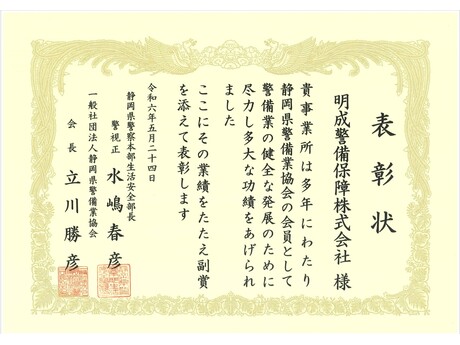 表彰状
明成警備保障株式会社 様
貴事業所は多年にわたり
静岡県警備業協会の会員として
警備業の健全な発展のために
尽力し多大な功績をあげられ
ました
ここにその業績をたたえ副賞
を添えて表彰します
令和六年五月二十四日
静岡県警察本部生活安全部長
警視正 水嶋春彦
一般社団法人静岡県警備業協会
会長 立川勝彦